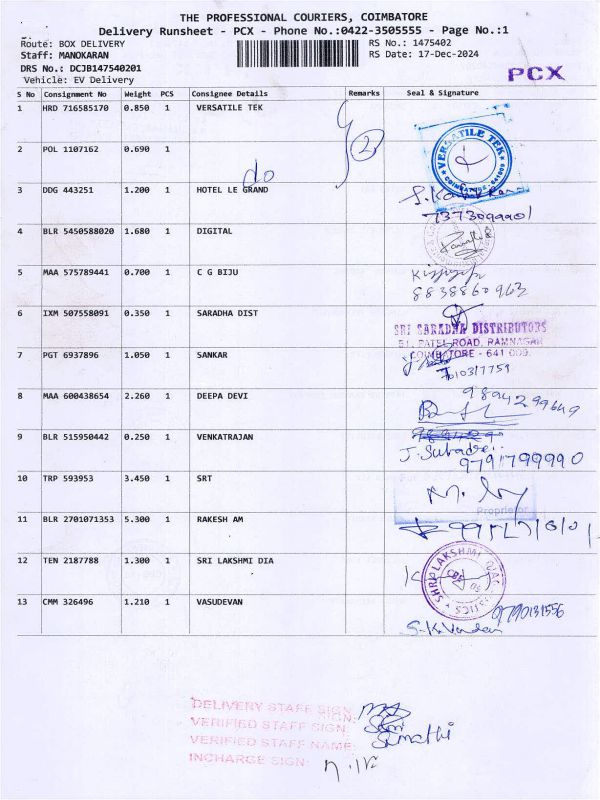 THE PROFESSIONAL COURIERS, COIMBATORE
Delivery Runsheet - PCX - Phone No.:0422-3505555 - Page No.:1
Route: BOX DELIVERY
RS No.: 1475402
Staff: MANOKARAN
RS Date: 17-Dec-2024
DRS No.: DCJB147540201
Vehicle: EV Delivery
PCX
S No Consignment No Weight PCS Consignee Details Remarks Seal & Signature
1 HRD 716585170 0.850 1 VERSATILE TEK
2
VERSATILE TEK
COIMBATORE - 641009
2 POL 1107162 0.690 1
do
3 DDG 443251 1.200 1 HOTEL LE GRAND
4 BLR 5450588020 1.680 1 DIGITAL
5 MAA 575789441 0.700 1 C G BIJU
8838860963
6 IXM 507558091 0.350 1 SARADHA DIST
SRI SARADHA DISTRIBUTORS
51, PATEL ROAD, RAMNAGAR
COIMBATORE - 641 009.
7 PGT 6937896 1.050 1 SANKAR
8 MAA 600438654 2.260 1 DEEPA DEVI
9894299649
9 BLR 515950442 0.250 1 VENKATRAJAN
9791799990
10 TRP 593953 3.450 1 SRT
Proprietor
11 BLR 2701071353 5.300 1 RAKESH AM
12 TEN 2187788 1.300 1 SRI LAKSHMI DIA
13 CMM 326496 1.210 1 VASUDEVAN
9790131556
DELIVERY STAFF SIGN:
VERIFIED STAFF SIGN:
VERIFIED STAFF NAME: Sumathi
INCHARGE SIGN: